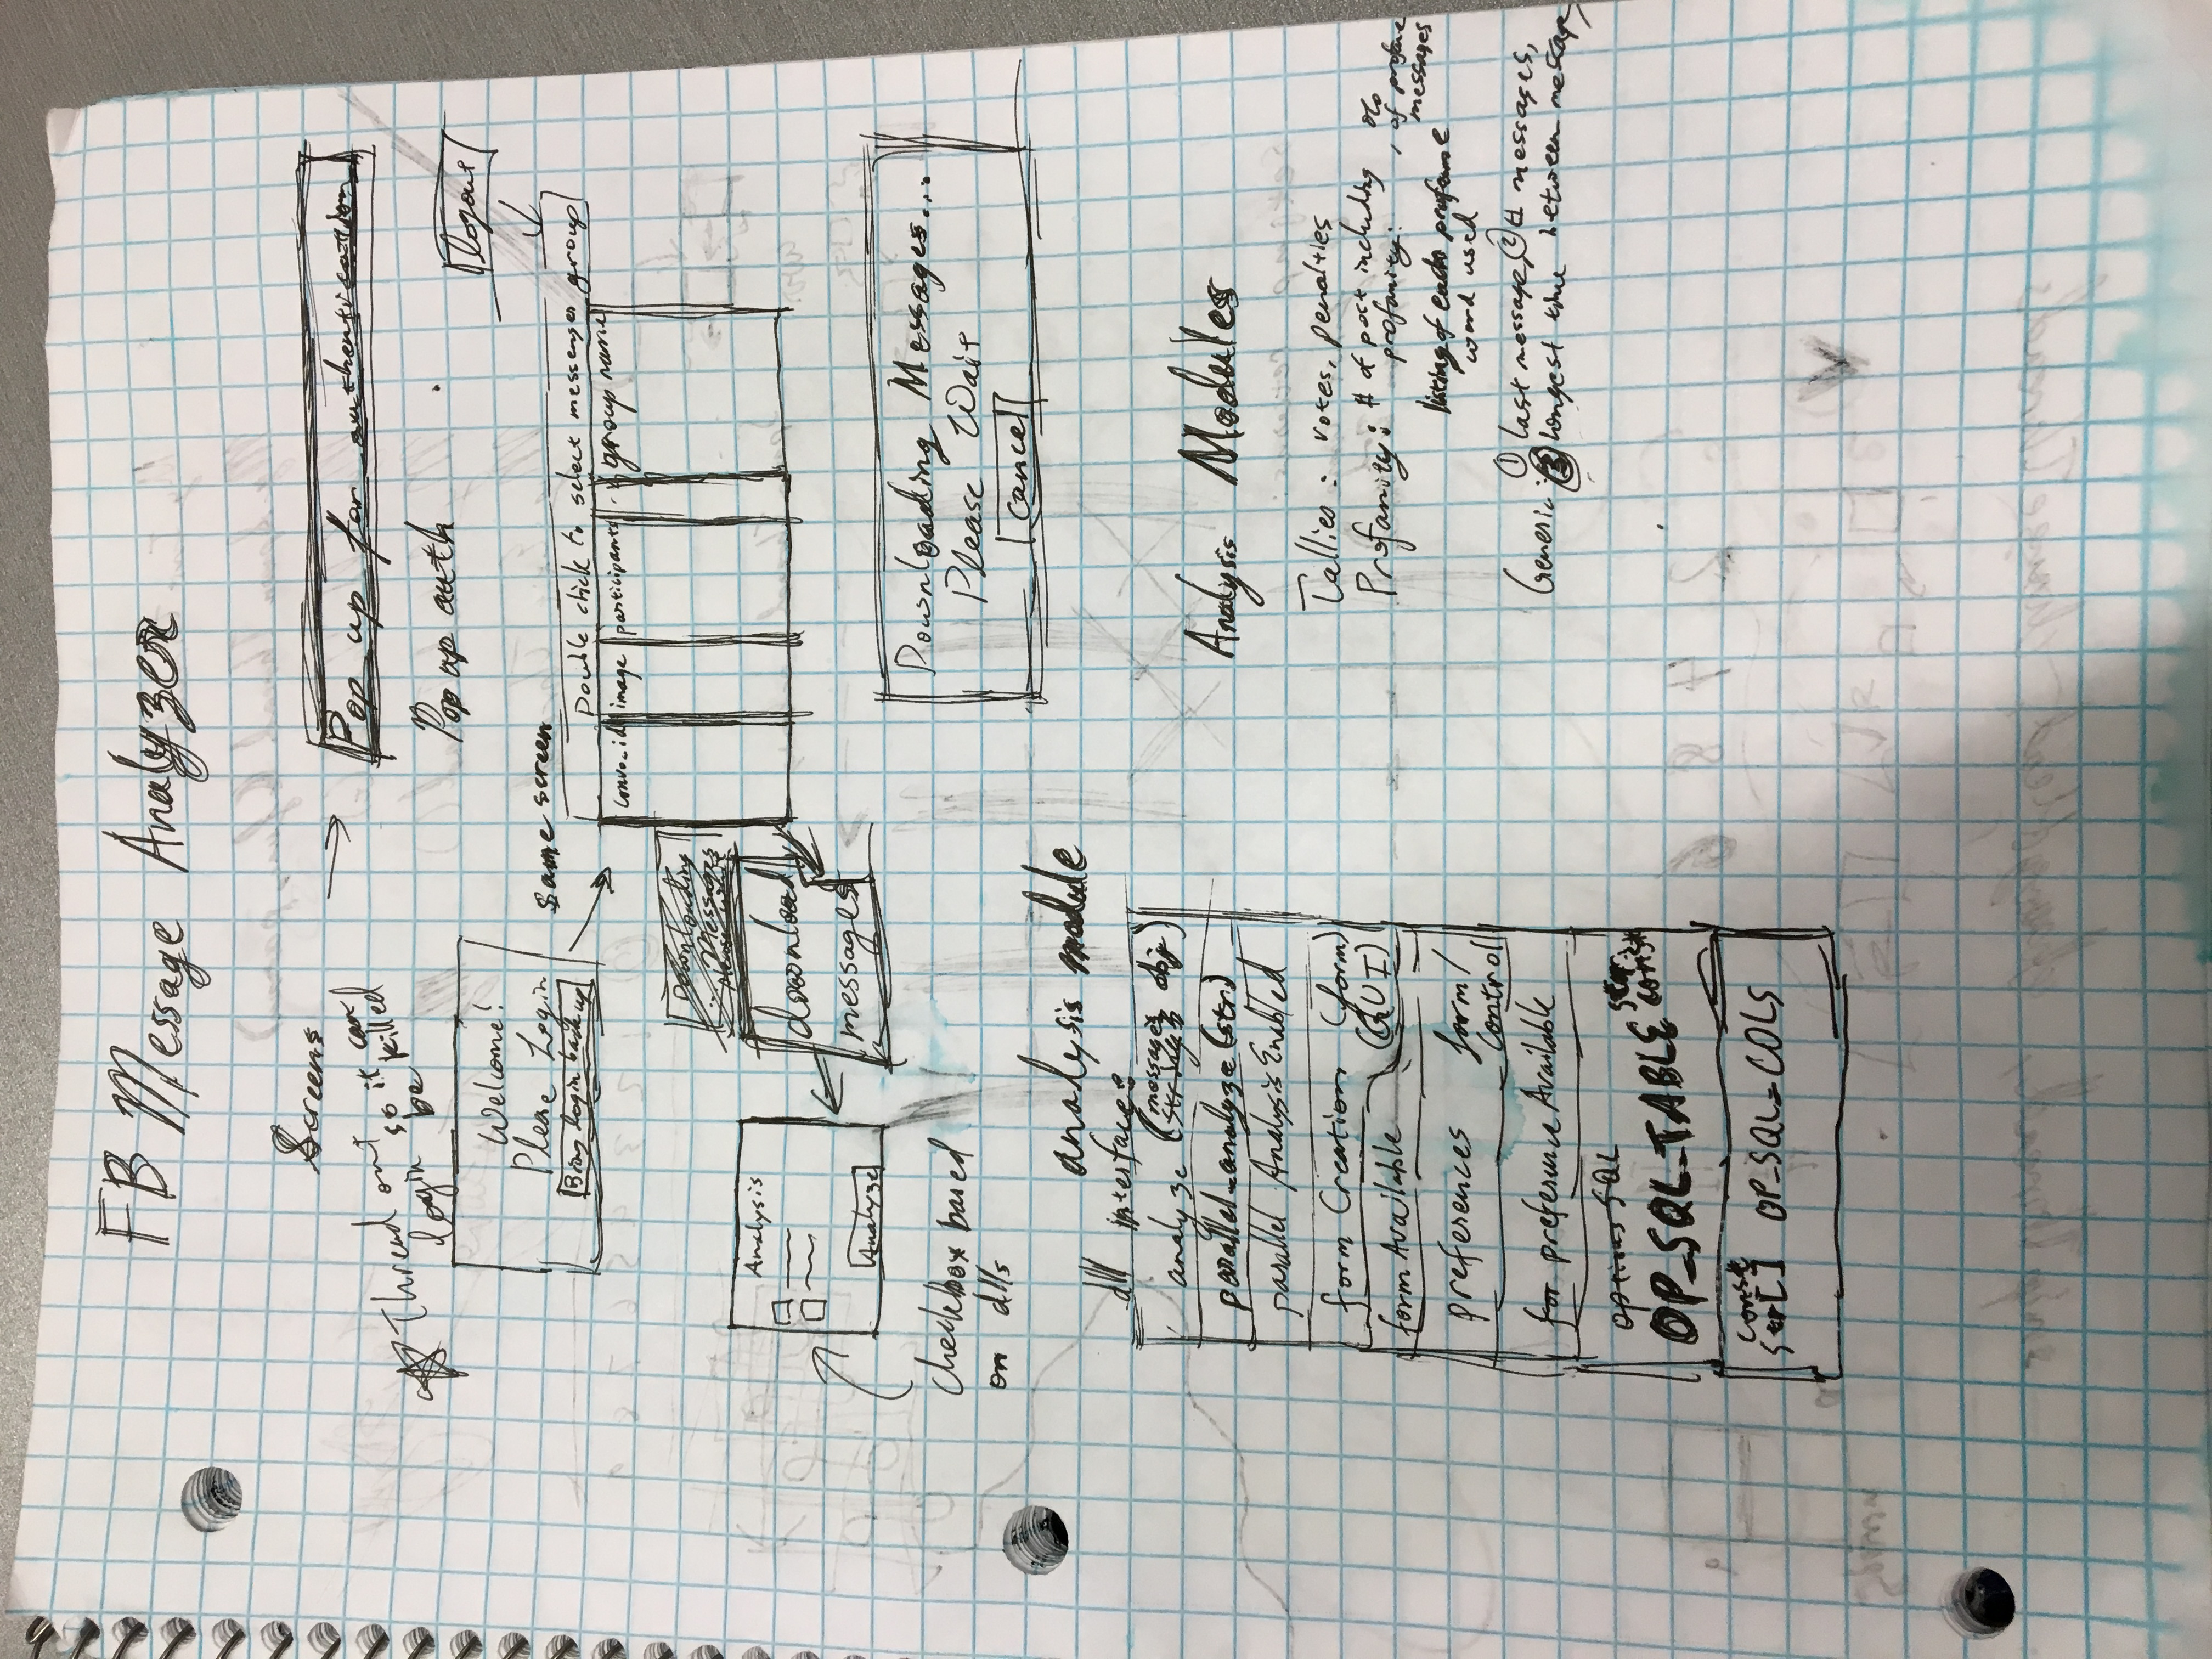 FB Message Analyzer
Screens
Pop up for authentication
Thread out
login so it can
be killed
Pop up auth
logout
Welcome!
Please Login
Bring login back up
Same screen
Double click to select messenger group
convo_id image participants group name
Downloading
... Messages
Please wait
download
messages
Analysis
Analyze
checkbox based
on dlls
Downloading Messages...
Please Wait
cancel
analysis module
dll interface:
analyze (messages obj)
strings
parallel_analyze (str)
parallel Analysis Enabled
form Creation (form)
(GUI)
form Available
preferences form/
Control
for preference Available
options SQL
OP_SQL_TABLE str
const
const
str[] OP_SQL_COLS
Analysis Modules
Tallies: votes, penalties
Profanity: # of post including
profanity.
, % of profane
messages
listing of each profane
word used
Generic: ① last message, ② # messages,
③ longest time between message,